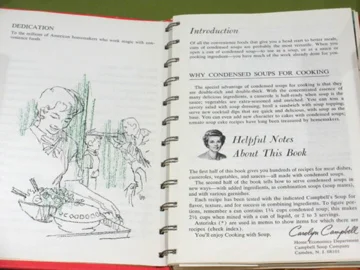 DEDICATION
To the millions of American homemakers who work magic with con-
venient foods
Introduction
Of all the convenience foods that give you a head start to better meals,
cans of condensed soups are probably the most versatile. When you
open a can of condensed soup—to use as a soup, or as a sauce or
cooking ingredient—you have much of the work already done for you.
WHY CONDENSED SOUPS FOR COOKING
The special advantage of condensed soups for cooking is that they
are double-rich and double-thick. With the concentrated essence of
many delicious ingredients, a casserole is half-ready when soup is the
sauce; vegetables are extra-seasoned and enriched. You can toss a
savory salad with soup dressing, heed a sandwich with soup topping,
serve new cocktail dips that are quick and delicious, with soup as the
base. You can even add new character to cakes with condensed soups;
tomato soup cake recipes have long been treasured by homemakers.
Helpful Notes
About This Book
The first half of this book gives you hundreds of recipes for meat dishes,
casseroles, vegetables, and sauces—all made with condensed soups.
The second half of the book tells how to serve condensed soups in
new ways—with added ingredients, in combination (soup mates),
and with various garnishes.
Each recipe has been tested with the indicated Campbell's Soup for
flavor, texture, and for success in combining ingredients. To figure por-
tions, remember a can contains 1¼ cups condensed soup; this makes
2½ cups when mixed with a can of liquid, or 2 to 3 servings.
Asterisks (*) are used in menus to show items for which there are
recipes (check index).
You'll enjoy Cooking with Soup.
Carolyn Campbell
Home Economics Department
Campbell Soup Company
Camden, N. J. 08101